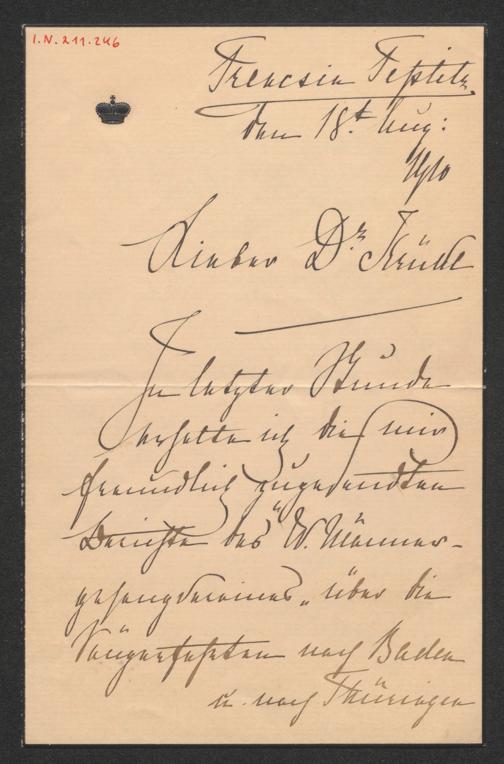 I.N. 211.246
Trencsin Teplitz.
den 18t. Aug:
Lieber Dr. Krückl
In letzter Stunde
erhalte ich die mir
freundlich zugesendten
Berichte des "W. Männer-
gesangvereines" über die
Sängerfahrten nach Baden
u. nach Thüringen